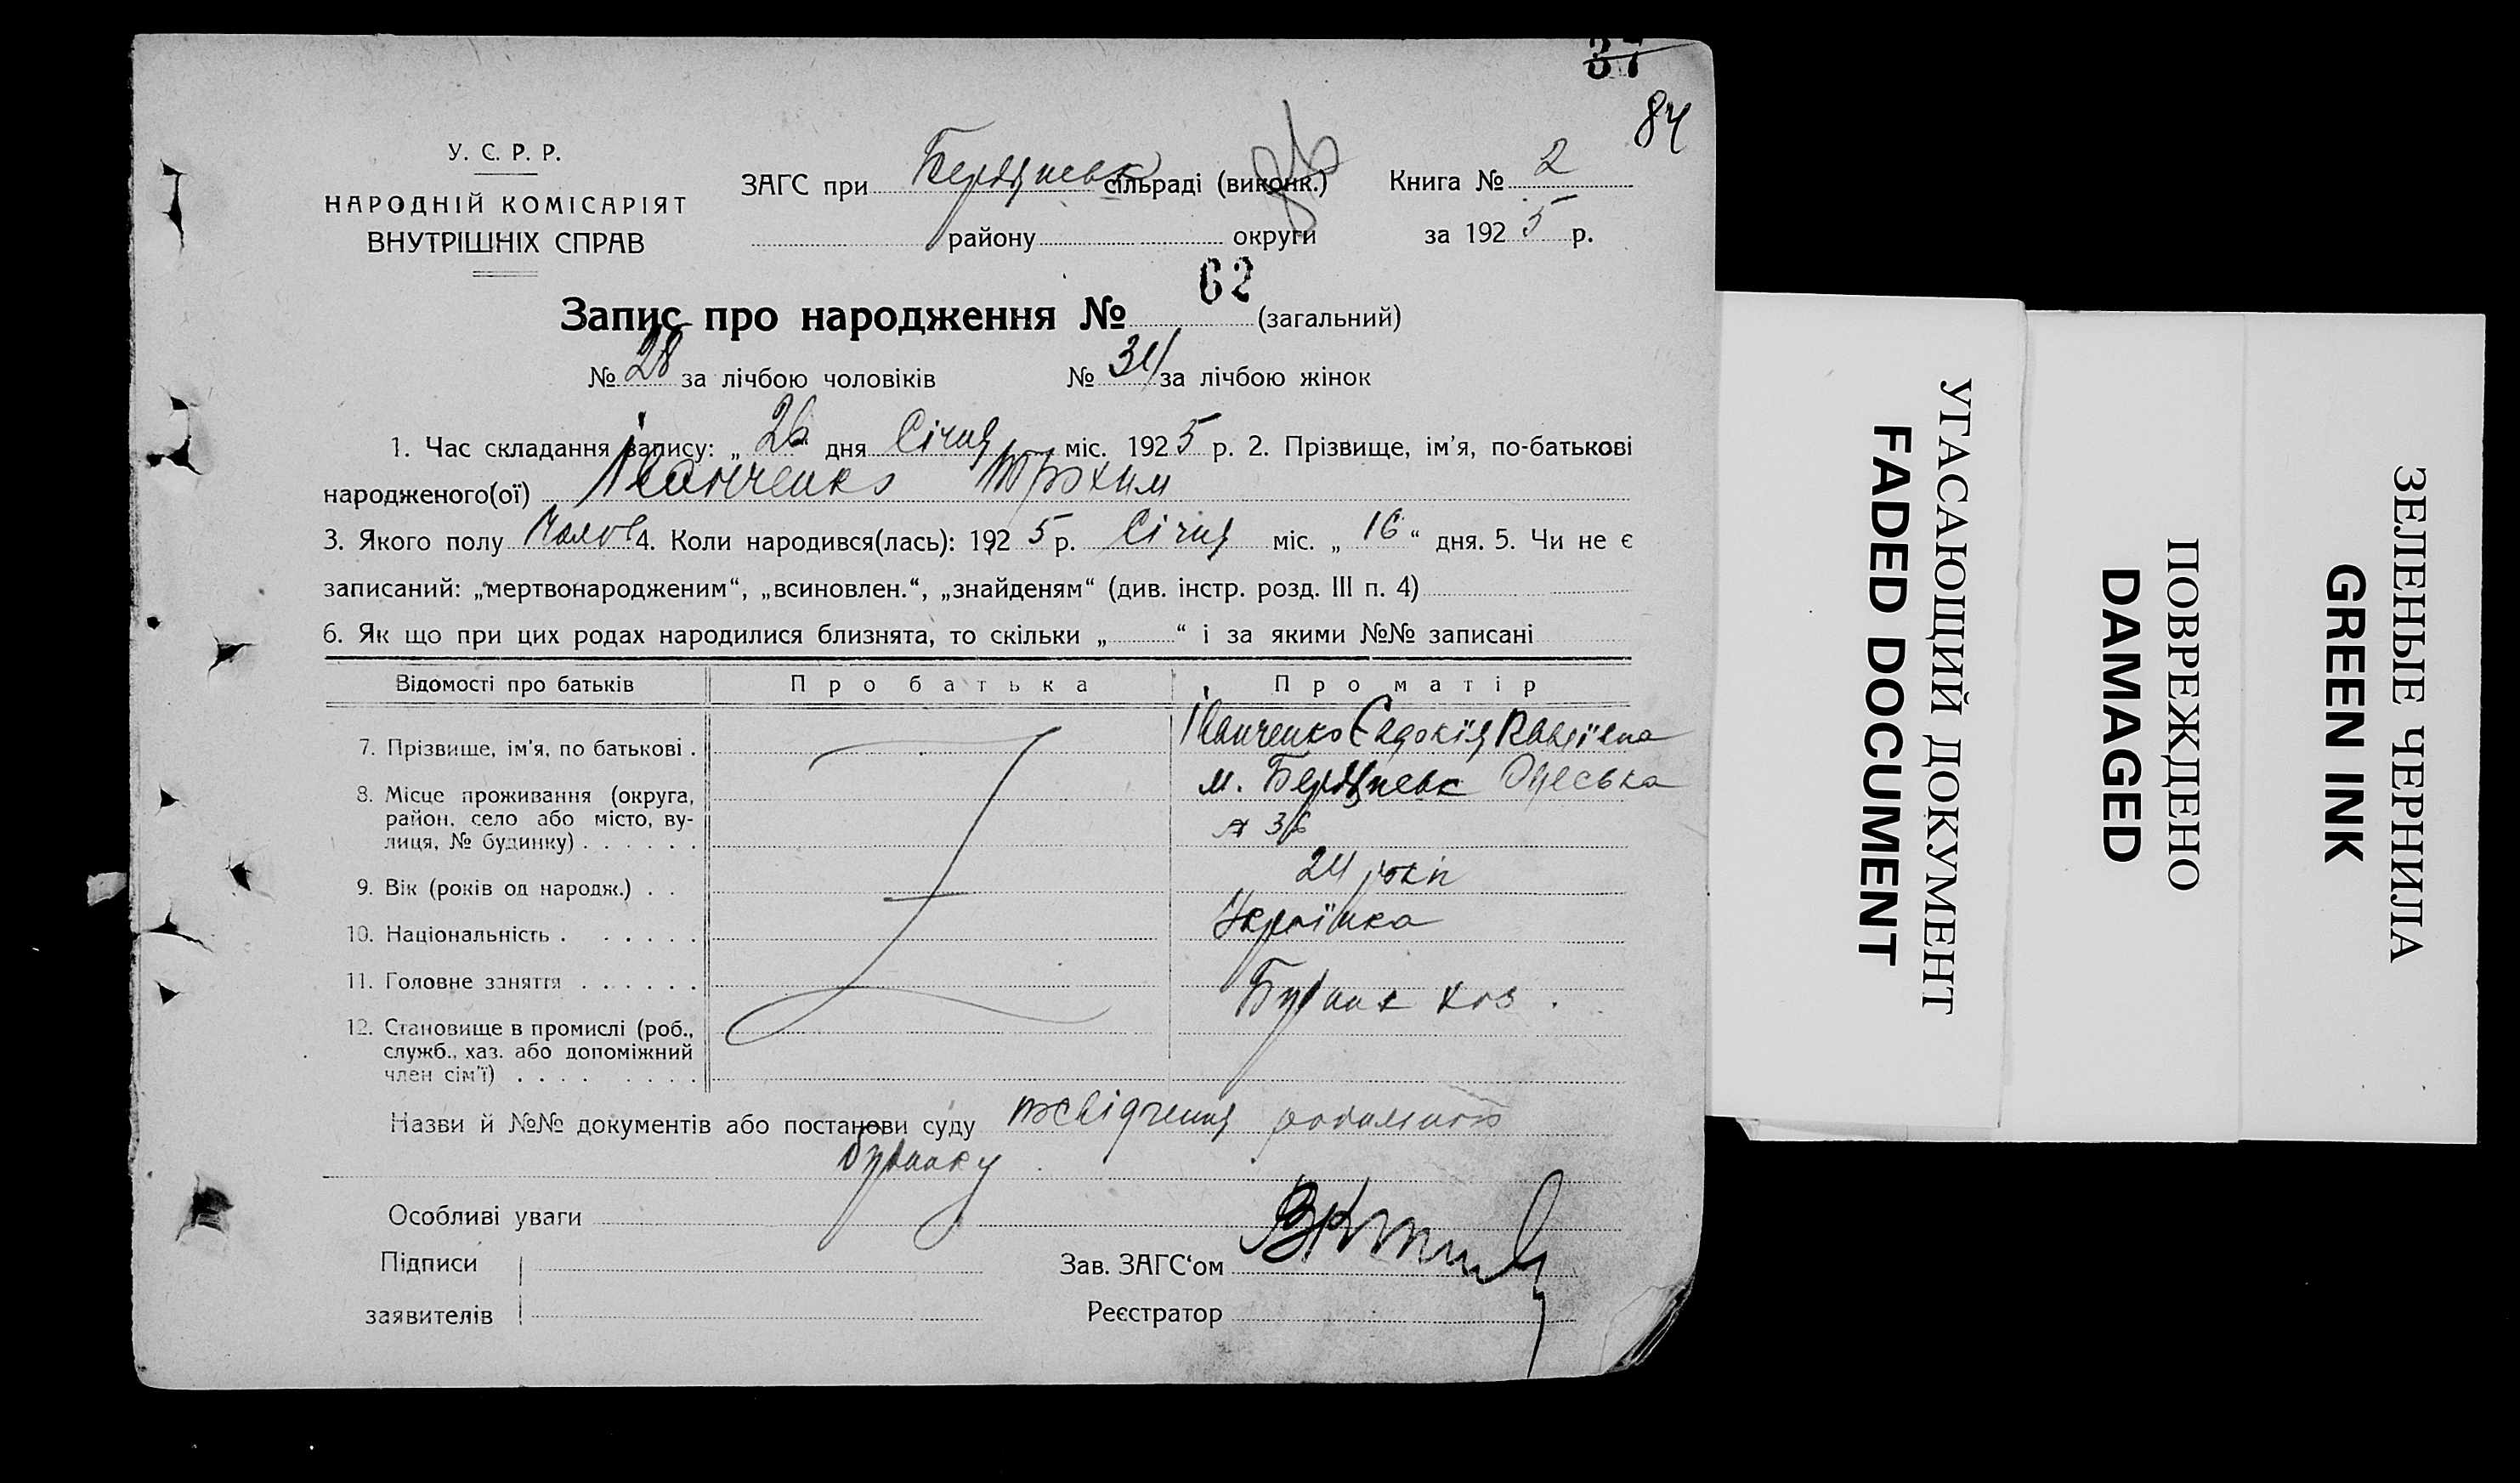 37
84
У. С. Р. Р.
НАРОДНІЙ КОМІСАРІЯТ
ВНУТРІШНІХ СПРАВ
ЗАГС при Бердянськ сільраді (виконк.) Книга № 2
району округи за 1925 р.
Запис про народження № 62 (загальний)
№ 28 за лічбою чоловіків № 34 за лічбою жінок
1. Час складання запису: „26“ дня Січня міс. 1925 р. 2. Прізвище, ім'я, по-батькові
народженого(ої) Іванченко Трохим
3. Якого полу Чолов 4. Коли народився(лась): 1925 р. Січня міс. „16“ дня. 5. Чи не є
записаний: „мертвонародженим“, „всиновлен.“, „знайденям“ (див. інстр. розд. III п. 4)
6. Як що при цих родах народилися близнята, то скільки „ “ і за якими №№ записані
Відомості про батьків Про батька Про матір
7. Прізвище, ім'я, по батькові . Іванченко Євдокія
8. Місце проживання (округа, район, село або місто, вулиця, № будинку) . . . . . . м. Бердянськ Одеська
36
9. Вік (років од народж.) . . 24 роки
10. Національність . . . . . . Українка
11. Головне заняття . . . . . .
12. Становище в промислі (роб., служб., хаз. або допоміжний член сім'ї) . . . . . . . .
Назви й №№ документів або постанови суду посвідчення
будинку
Особливі уваги
Підписи Зав. ЗАГС'ом
заявителів Реєстратор
УГАСАЮЩИЙ ДОКУМЕНТ
FADED DOCUMENT
ПОВРЕЖДЕНО
DAMAGED
ЗЕЛЕНЫЕ ЧЕРНИЛА
GREEN INK